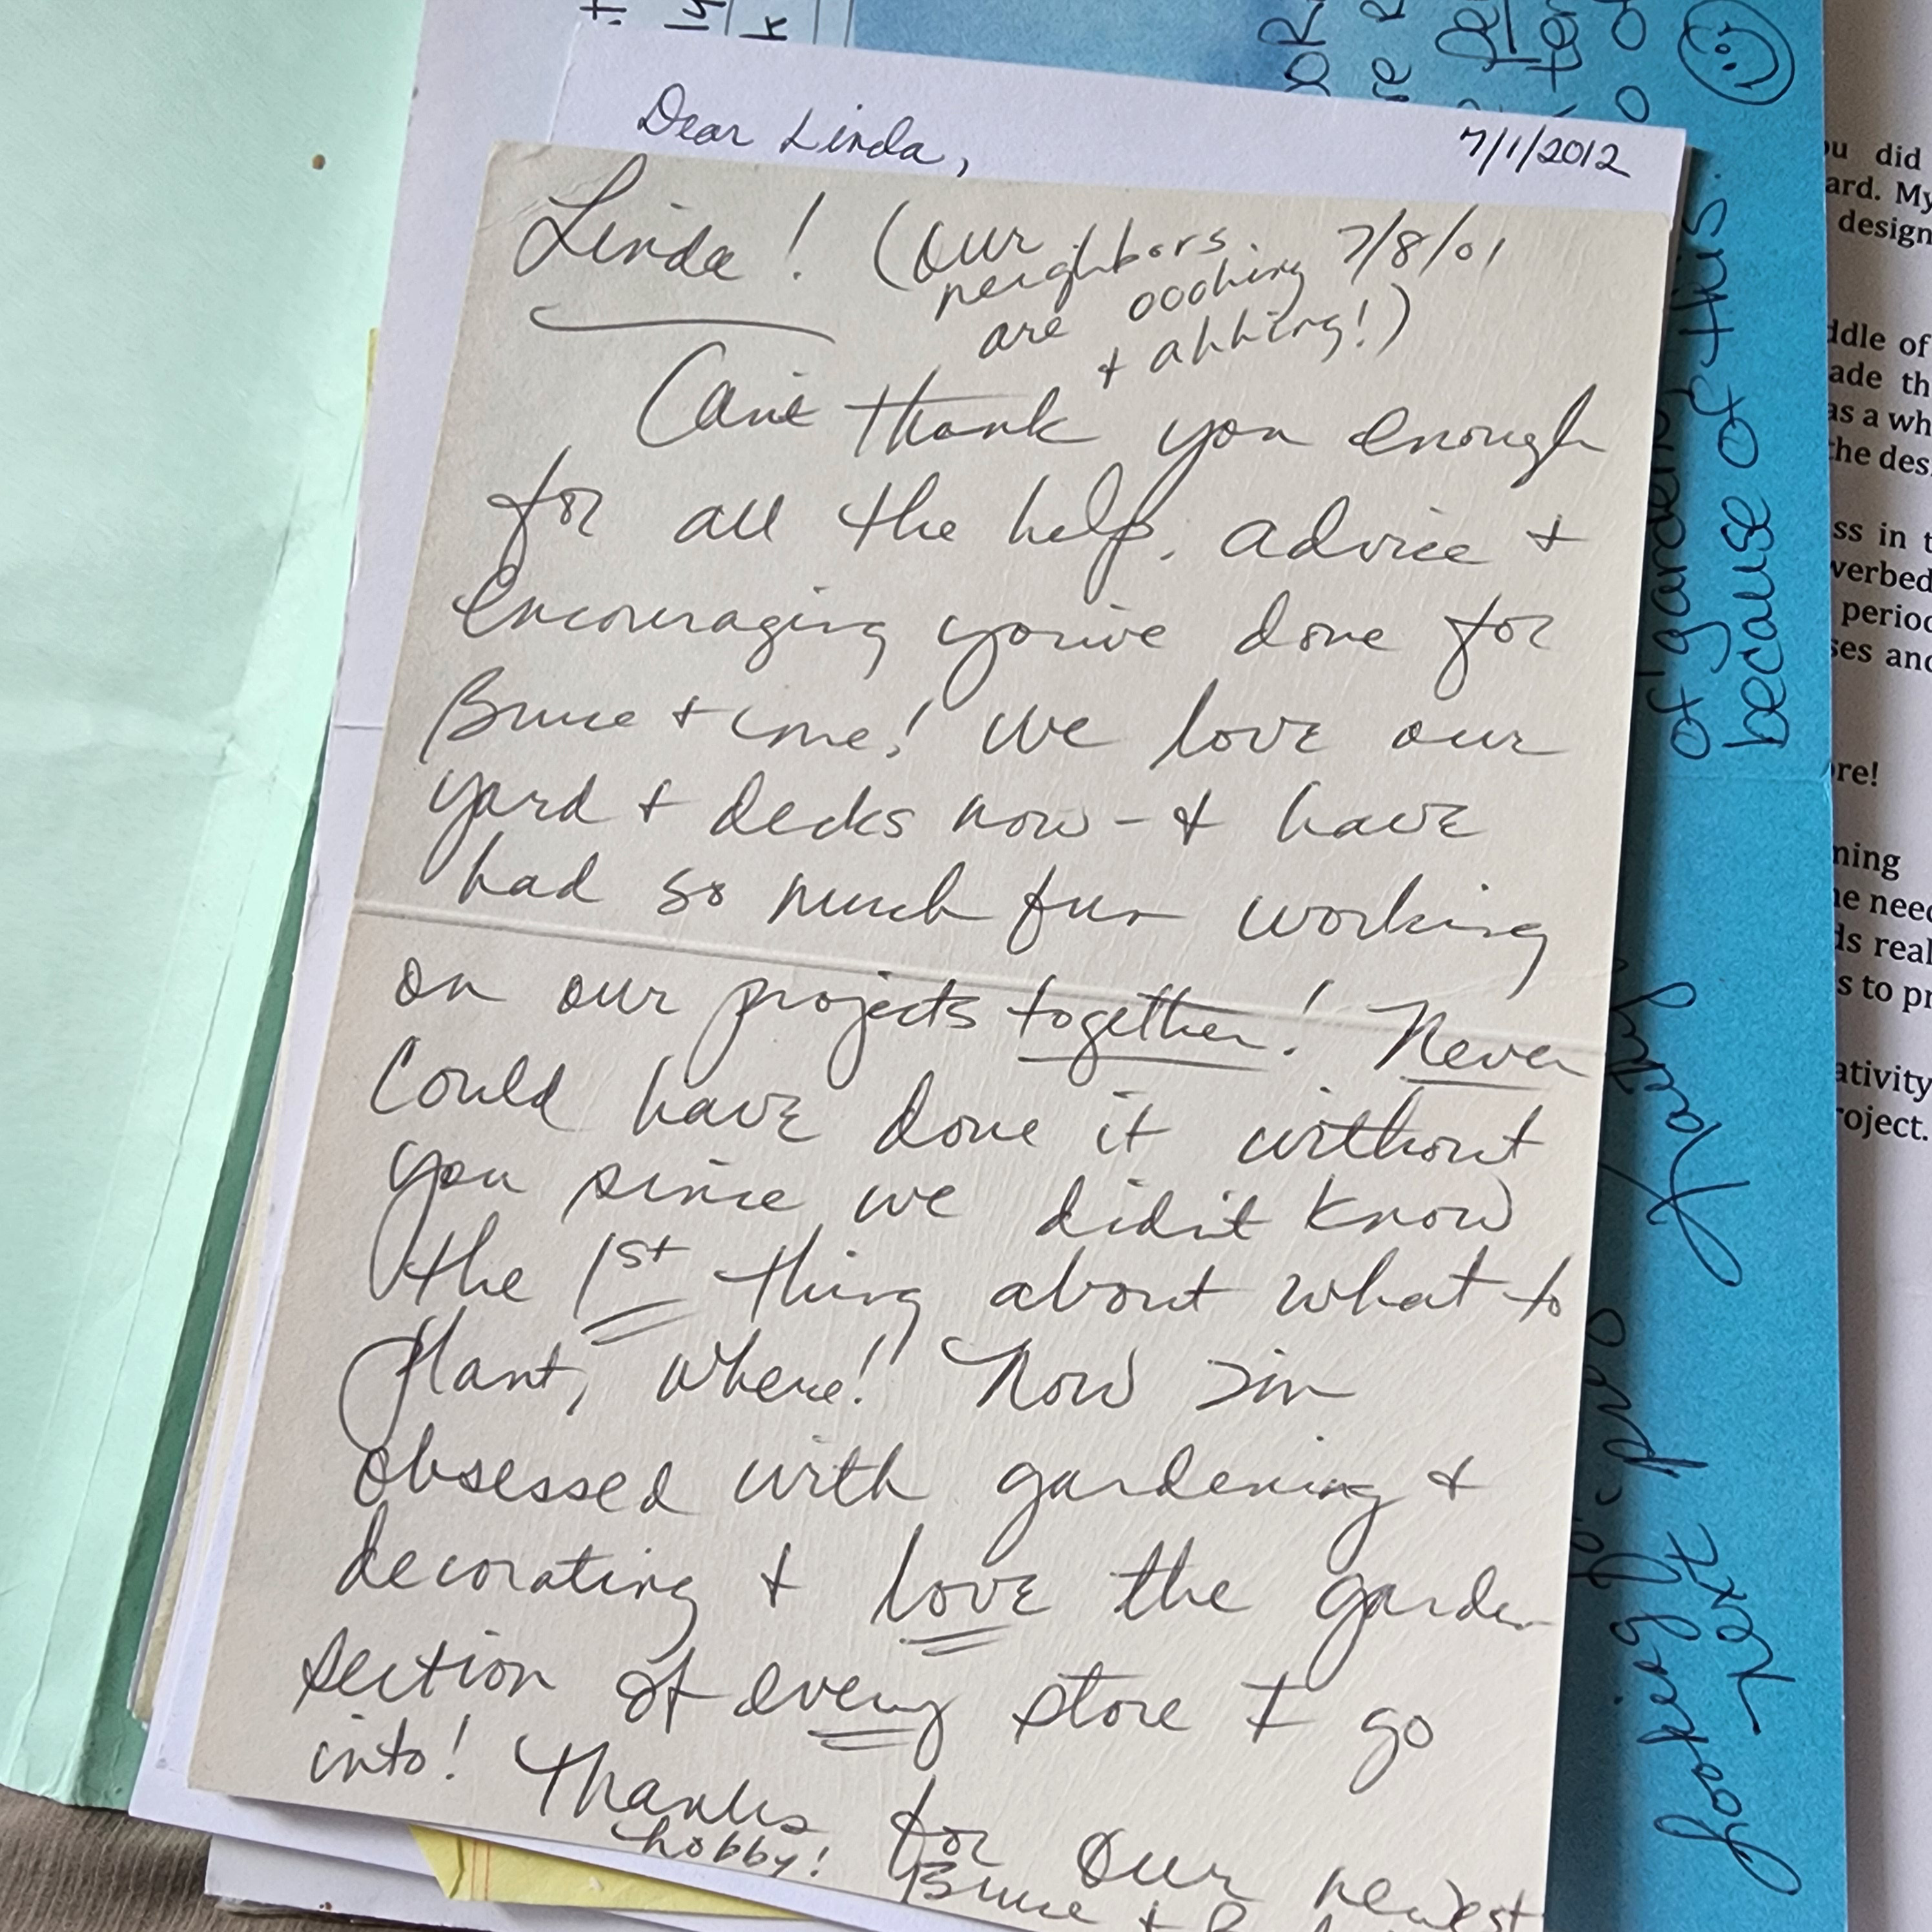 Dear Linda,
7/1/2012
Linda! (Our 7/8/01
neighbors
are ooohing
+ ahhing!)
Can't thank you enough
for all the help, advice +
encouraging you've done for
Bruce + me! We love our
yard + decks now - + have
had so much fun working
on our projects together! Never
could have done it without
you since we didn't know
the 1st thing about what to
plant, where! Now I'm
obsessed with gardening +
decorating + love the garden
section of every store I go
into! Thanks for our newest
hobby!
Bruce +
of gardening
because of this.
Looking
next
and
ou did
ard. My
design
ddle of
ade th
as a wh
the des
ss in t
verbed
period
ses and
ore!
ning
ne need
ds real
s to pr
ativity
roject.